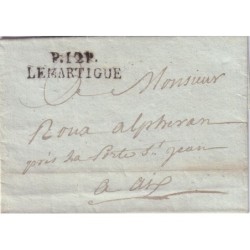 P.12.P.
LEMARTIGUE
A Monsieur
Roux alpheran
près la Porte St jean
a aix